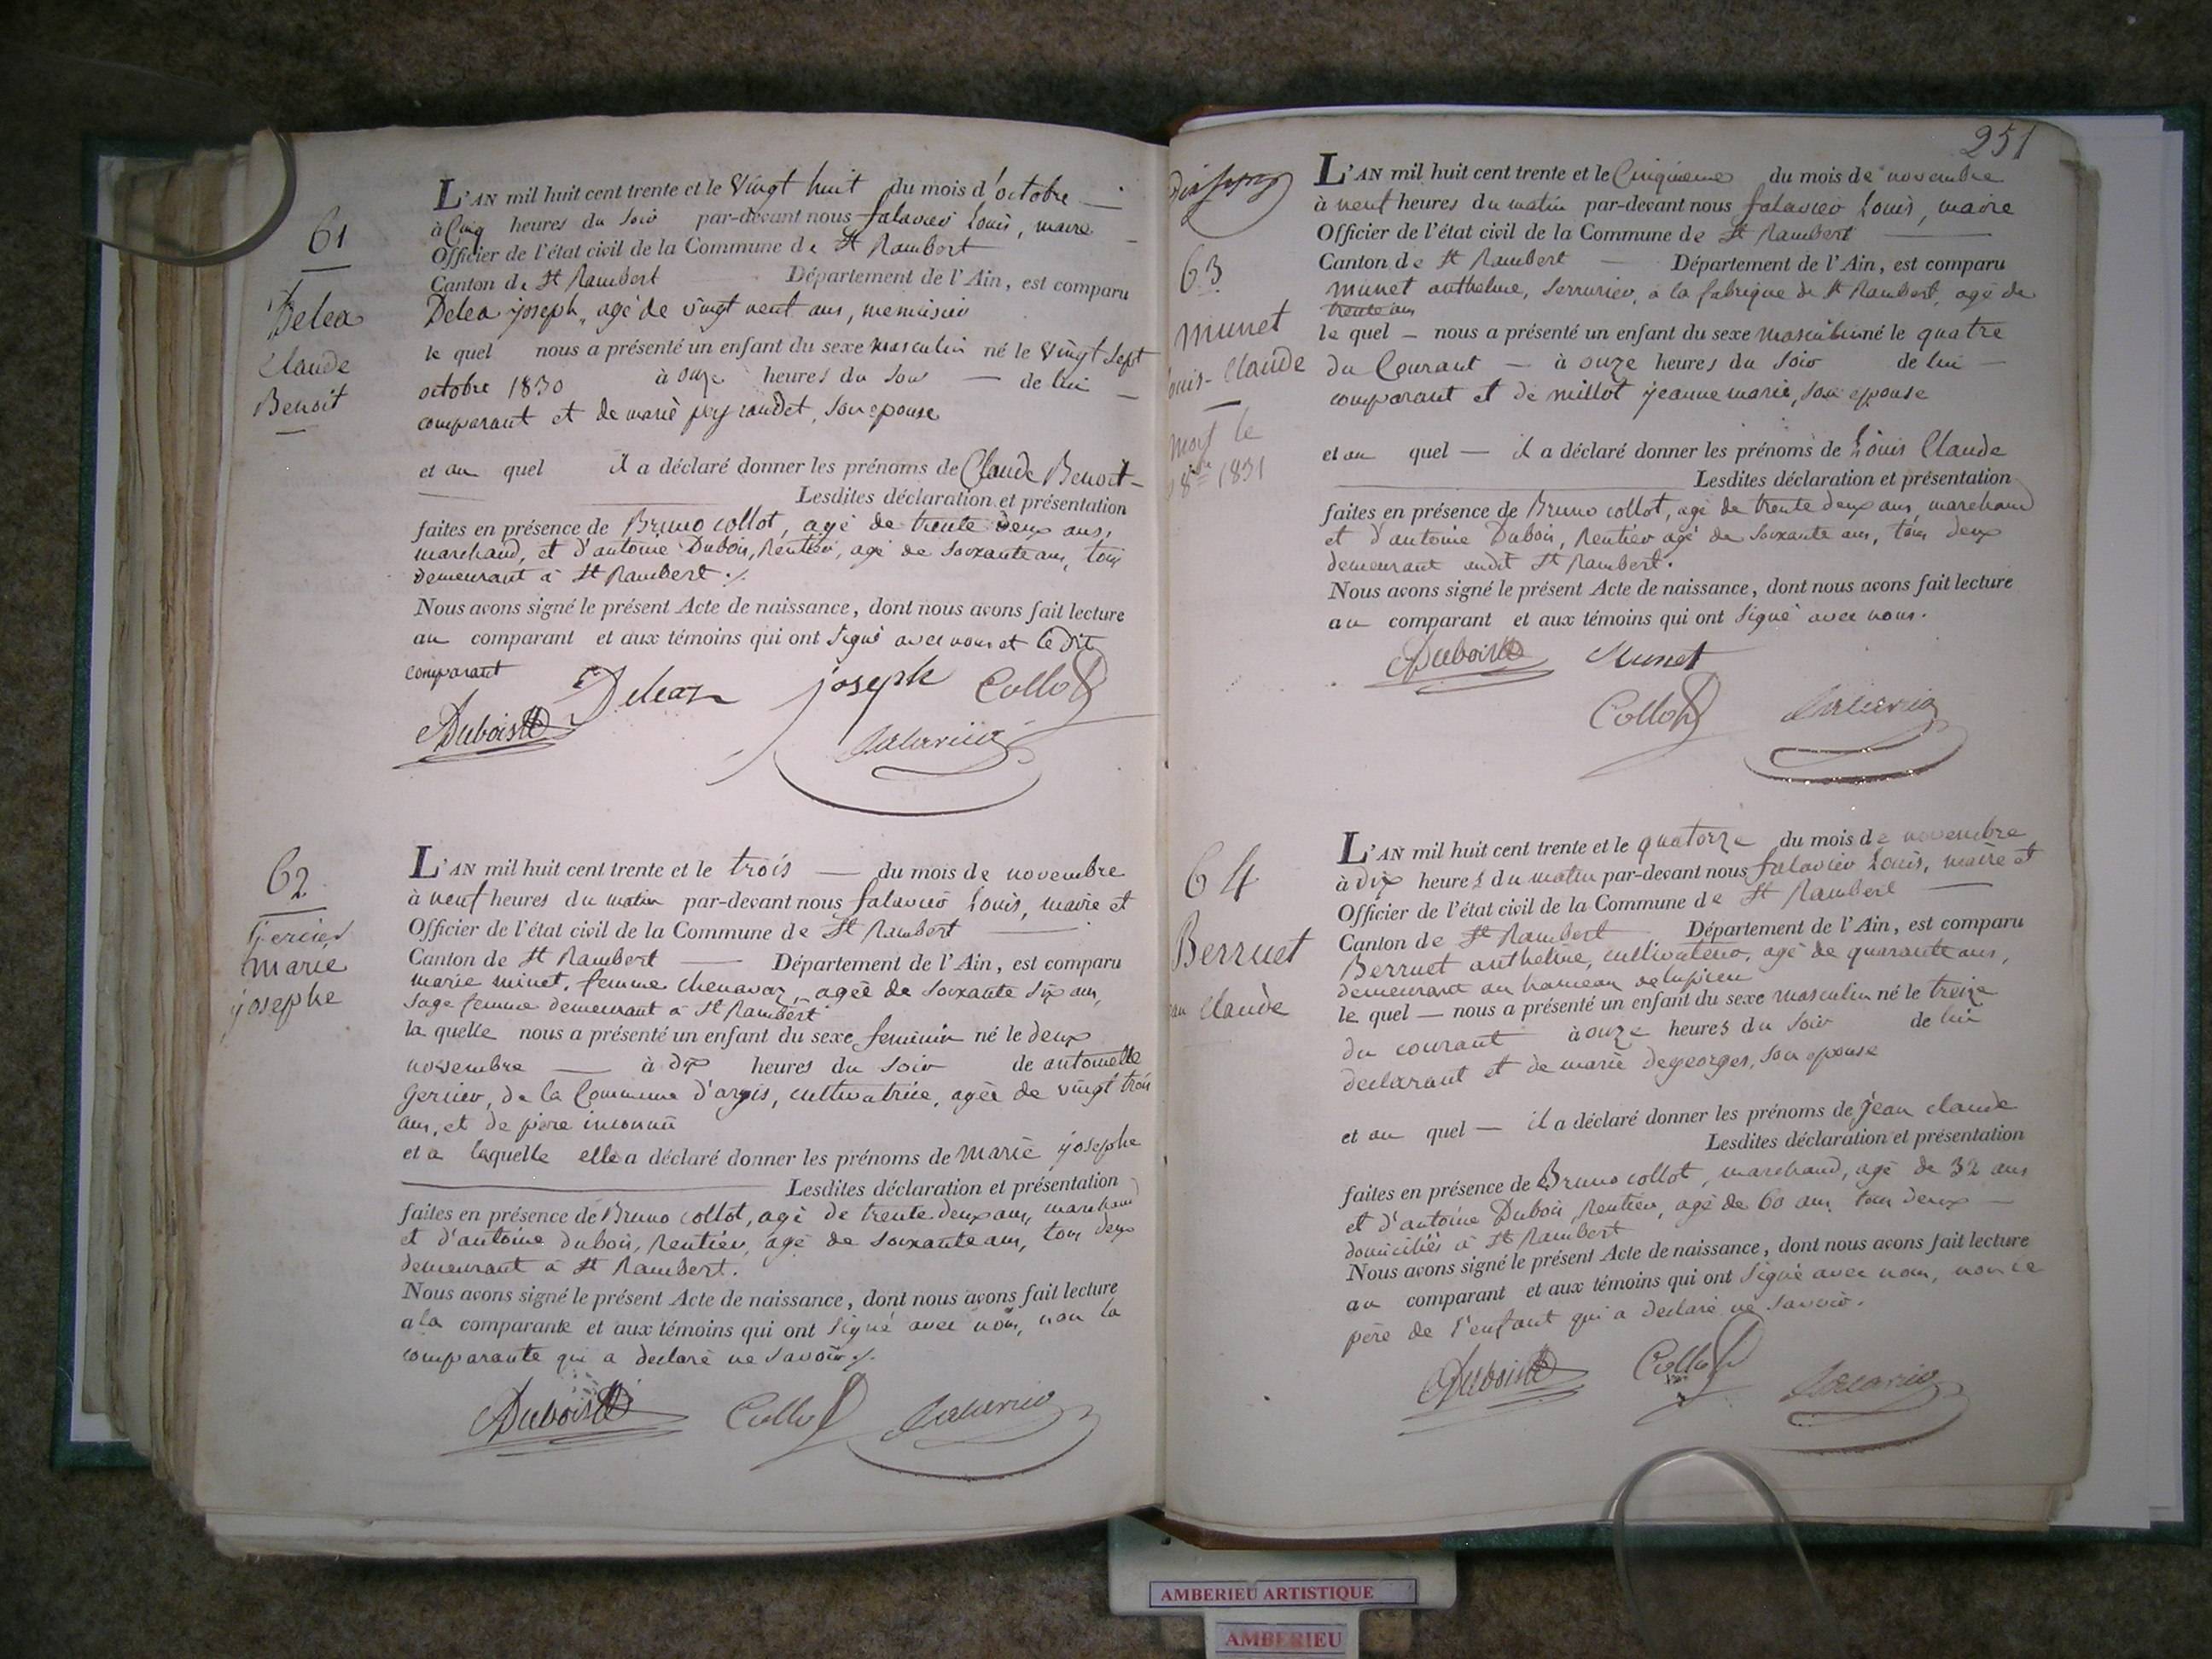 61
Delea
Claude
Benoit
L'AN mil huit cent trente et le vingt huit du mois d'octobre
à Cinq heures du soir par-devant nous falavier Louis, maire
Officier de l'état civil de la Commune de St Rambert
Canton de St Rambert Département de l'Ain, est comparu
Delea joseph, agé de vingt neuf ans, menuisier
le quel nous a présenté un enfant du sexe masculin né le vingt sept
octobre 1830 à onze heures du soir de lui
comparant et de marie, son epouse
et au quel il a déclaré donner les prénoms de Claude Benoit
Lesdites déclaration et présentation
faites en présence de Bruno collot, agé de trente deux ans,
marchand, et d'antoine Dubois, Rentier, agé de soixante ans, tous
demeurant à St Rambert ./.
Nous avons signé le présent Acte de naissance, dont nous avons fait lecture
au comparant et aux témoins qui ont signé avec nous et le dit
comparant
Deleaz joseph Collot
Dubois
falavier
62
Gercier
marie
josephe
L'AN mil huit cent trente et le trois du mois de novembre
à neuf heures du matin par-devant nous falavier Louis, maire et
Officier de l'état civil de la Commune de St Rambert
Canton de St Rambert Département de l'Ain, est comparu
marie minet, femme chenavaz, agée de soixante six ans,
sage femme demeurant à St Rambert
la quelle nous a présenté un enfant du sexe feminin né le deux
novembre à dix heures du soir de antoinette
Gercier, de la Commune d'argis, cultivatrice, agée de vingt trois
ans, et de père inconnu
et a laquelle elle a déclaré donner les prénoms de marie josephe
Lesdites déclaration et présentation
faites en présence de Bruno collot, agé de trente deux ans, marchand
et d'antoine dubois, Rentier, agé de soixante ans, tous deux
demeurant à St Rambert.
Nous avons signé le présent Acte de naissance, dont nous avons fait lecture
a la comparante et aux témoins qui ont signé avec nous, non la
comparante qui a declaré ne savoir ./.
Dubois Collot falavier
251
63
munet
Louis-Claude
mort le
1831
L'AN mil huit cent trente et le Cinquieme du mois de novembre
à neuf heures du matin par-devant nous falavier Louis, maire
Officier de l'état civil de la Commune de St Rambert
Canton de St Rambert Département de l'Ain, est comparu
munet anthelme, serrurier, à la fabrique de St Rambert, agé de
trente ans
le quel nous a présenté un enfant du sexe masculin né le quatre
du Courant à onze heures du soir de lui
comparant et de millot jeanne marie, son epouse
et au quel il a déclaré donner les prénoms de Louis Claude
Lesdites déclaration et présentation
faites en présence de Bruno collot, agé de trente deux ans, marchand
et d'antoine Dubois, Rentier agé de soixante ans, tous deux
demeurant audit St Rambert.
Nous avons signé le présent Acte de naissance, dont nous avons fait lecture
au comparant et aux témoins qui ont signé avec nous.
Dubois Munet
Collot falavier
64
Berruet
jean claude
L'AN mil huit cent trente et le quatorze du mois de novembre
à dix heures du matin par-devant nous falavier Louis, maire et
Officier de l'état civil de la Commune de St Rambert
Canton de St Rambert Département de l'Ain, est comparu
Berruet anthelme, cultivateur, agé de quarante ans,
demeurant au hameau de lupieu
le quel nous a présenté un enfant du sexe masculin né le treize
du courant à onze heures du soir de lui
declarant et de marie degeorges, son epouse
et au quel il a déclaré donner les prénoms de jean claude
Lesdites déclaration et présentation
faites en présence de Bruno collot, marchand, agé de 32 ans
et d'antoine Dubois, Rentier, agé de 60 ans, tous deux
domiciliés à St Rambert
Nous avons signé le présent Acte de naissance, dont nous avons fait lecture
au comparant et aux témoins qui ont signé avec nous, non le
père de l'enfant qui a declaré ne savoir.
Dubois Collot falavier
AMBERIEU ARTISTIQUE
AMBERIEU